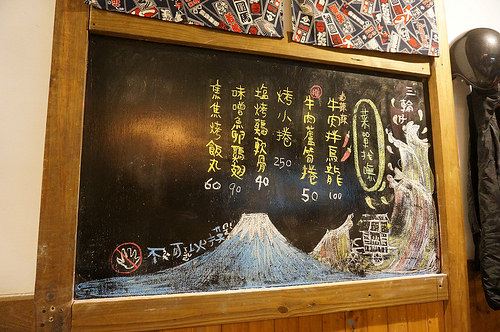 三輪
菜單推薦
牛肉拌烏龍 100
牛肉蘆筍捲 50
烤小捲 250
塩烤鷄軟骨 40
味噌魚卵鷄翅 90
焦焦烤飯丸 60
不可以